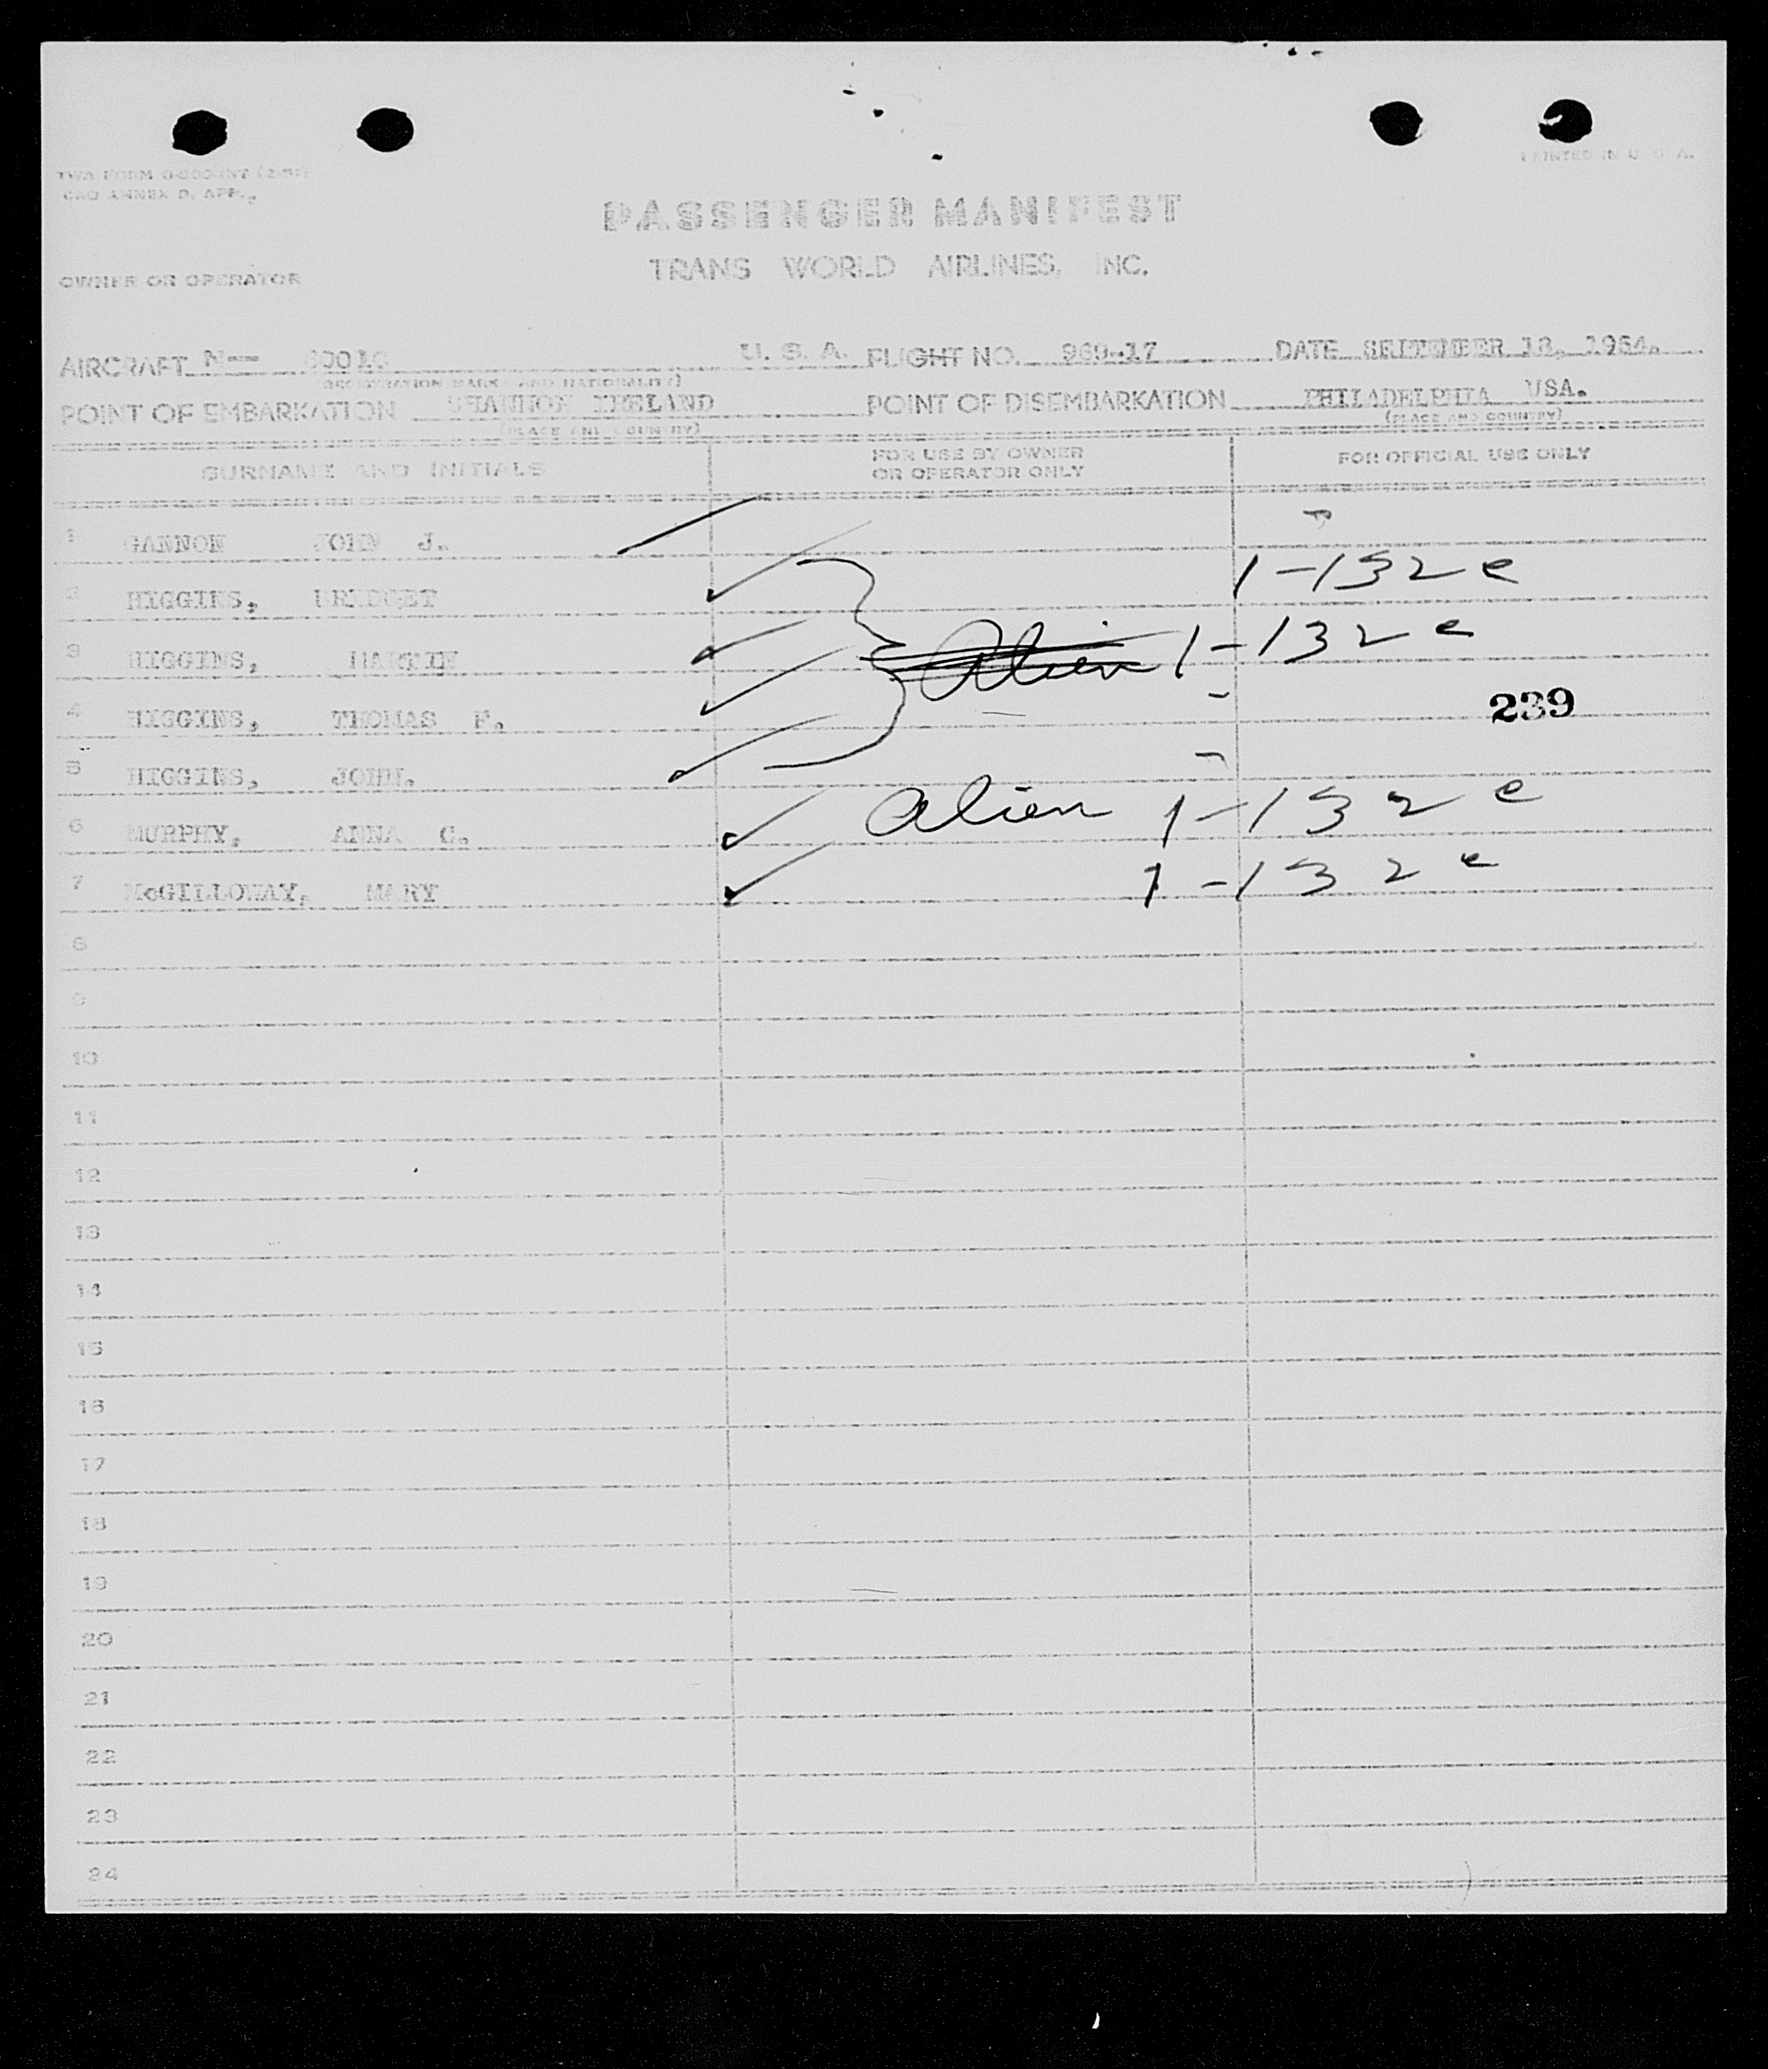 PRINTED IN U. S. A.
TWA FORM
CAO ANNEX 9, APP.
PASSENGER MANIFEST
OWNER OR OPERATOR
TRANS WORLD AIRLINES, INC.
AIRCRAFT N-- U. S. A. FLIGHT NO. 969-17 DATE SEPTEMBER 18, 1954.
(REGISTRATION MARKS AND NATIONALITY)
POINT OF EMBARKATION SHANNON IRELAND POINT OF DISEMBARKATION PHILADELPHIA USA.
(PLACE AND COUNTRY) (PLACE AND COUNTRY)
SURNAME AND INITIALS FOR USE BY OWNER OR OPERATOR ONLY FOR OFFICIAL USE ONLY
1 GANNON JOHN J.
2 HIGGINS, BRIDGET 1-132e
3 HIGGINS, MARTIN Alien 1-132e
4 HIGGINS, THOMAS F. 239
5 HIGGINS, JOHN.
6 MURPHY, ANNA C. alien 1-132e
7 McGILLOWAY, MARY 1-132e
8
9
10
11
12
13
14
15
16
17
18
19
20
21
22
23
24